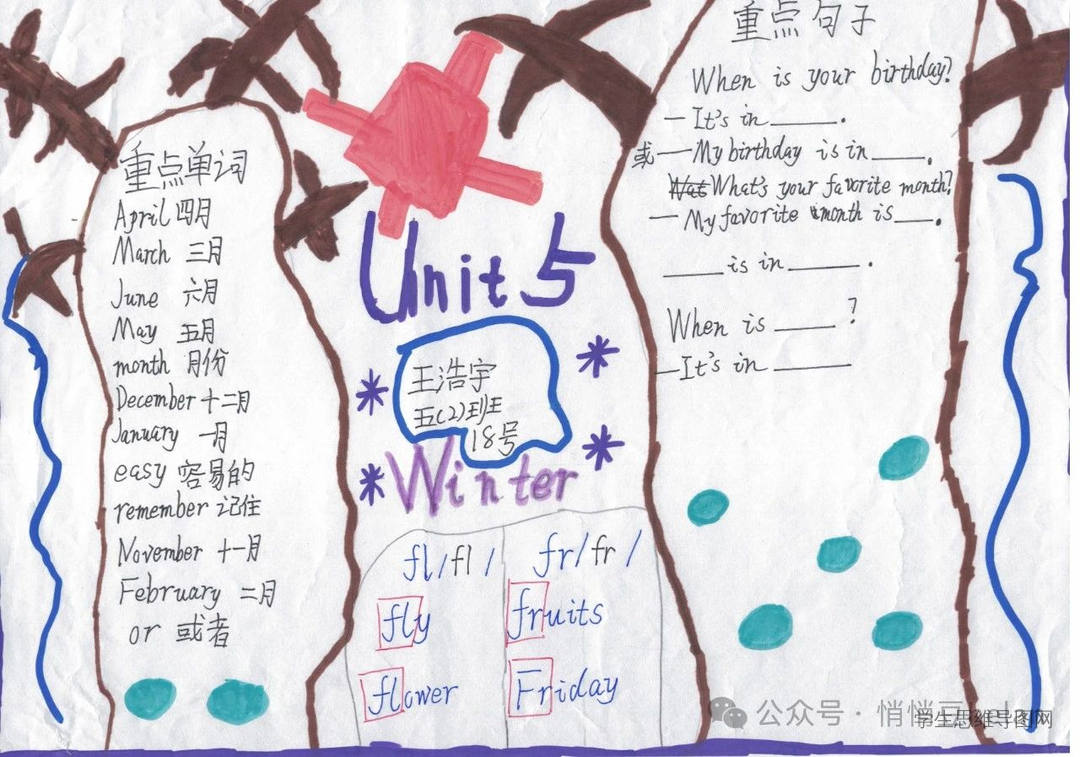 重点单词
April 四月
March 三月
June 六月
May 五月
month 月份
December 十二月
January 一月
easy 容易的
remember 记住
November 十一月
February 二月
or 或者
Unit 5
王浩宇
五(2)班
18号
Winter
fl/fl/
fly
flower
fr/fr/
fruits
Friday
重点句子
When is your birthday?
—It's in ______.
或—My birthday is in ____.
What's your favorite month?
—My favorite month is ___.
_____ is in ______.
When is _____?
—It's in _______
公众号·悄悄
学生思维导图网